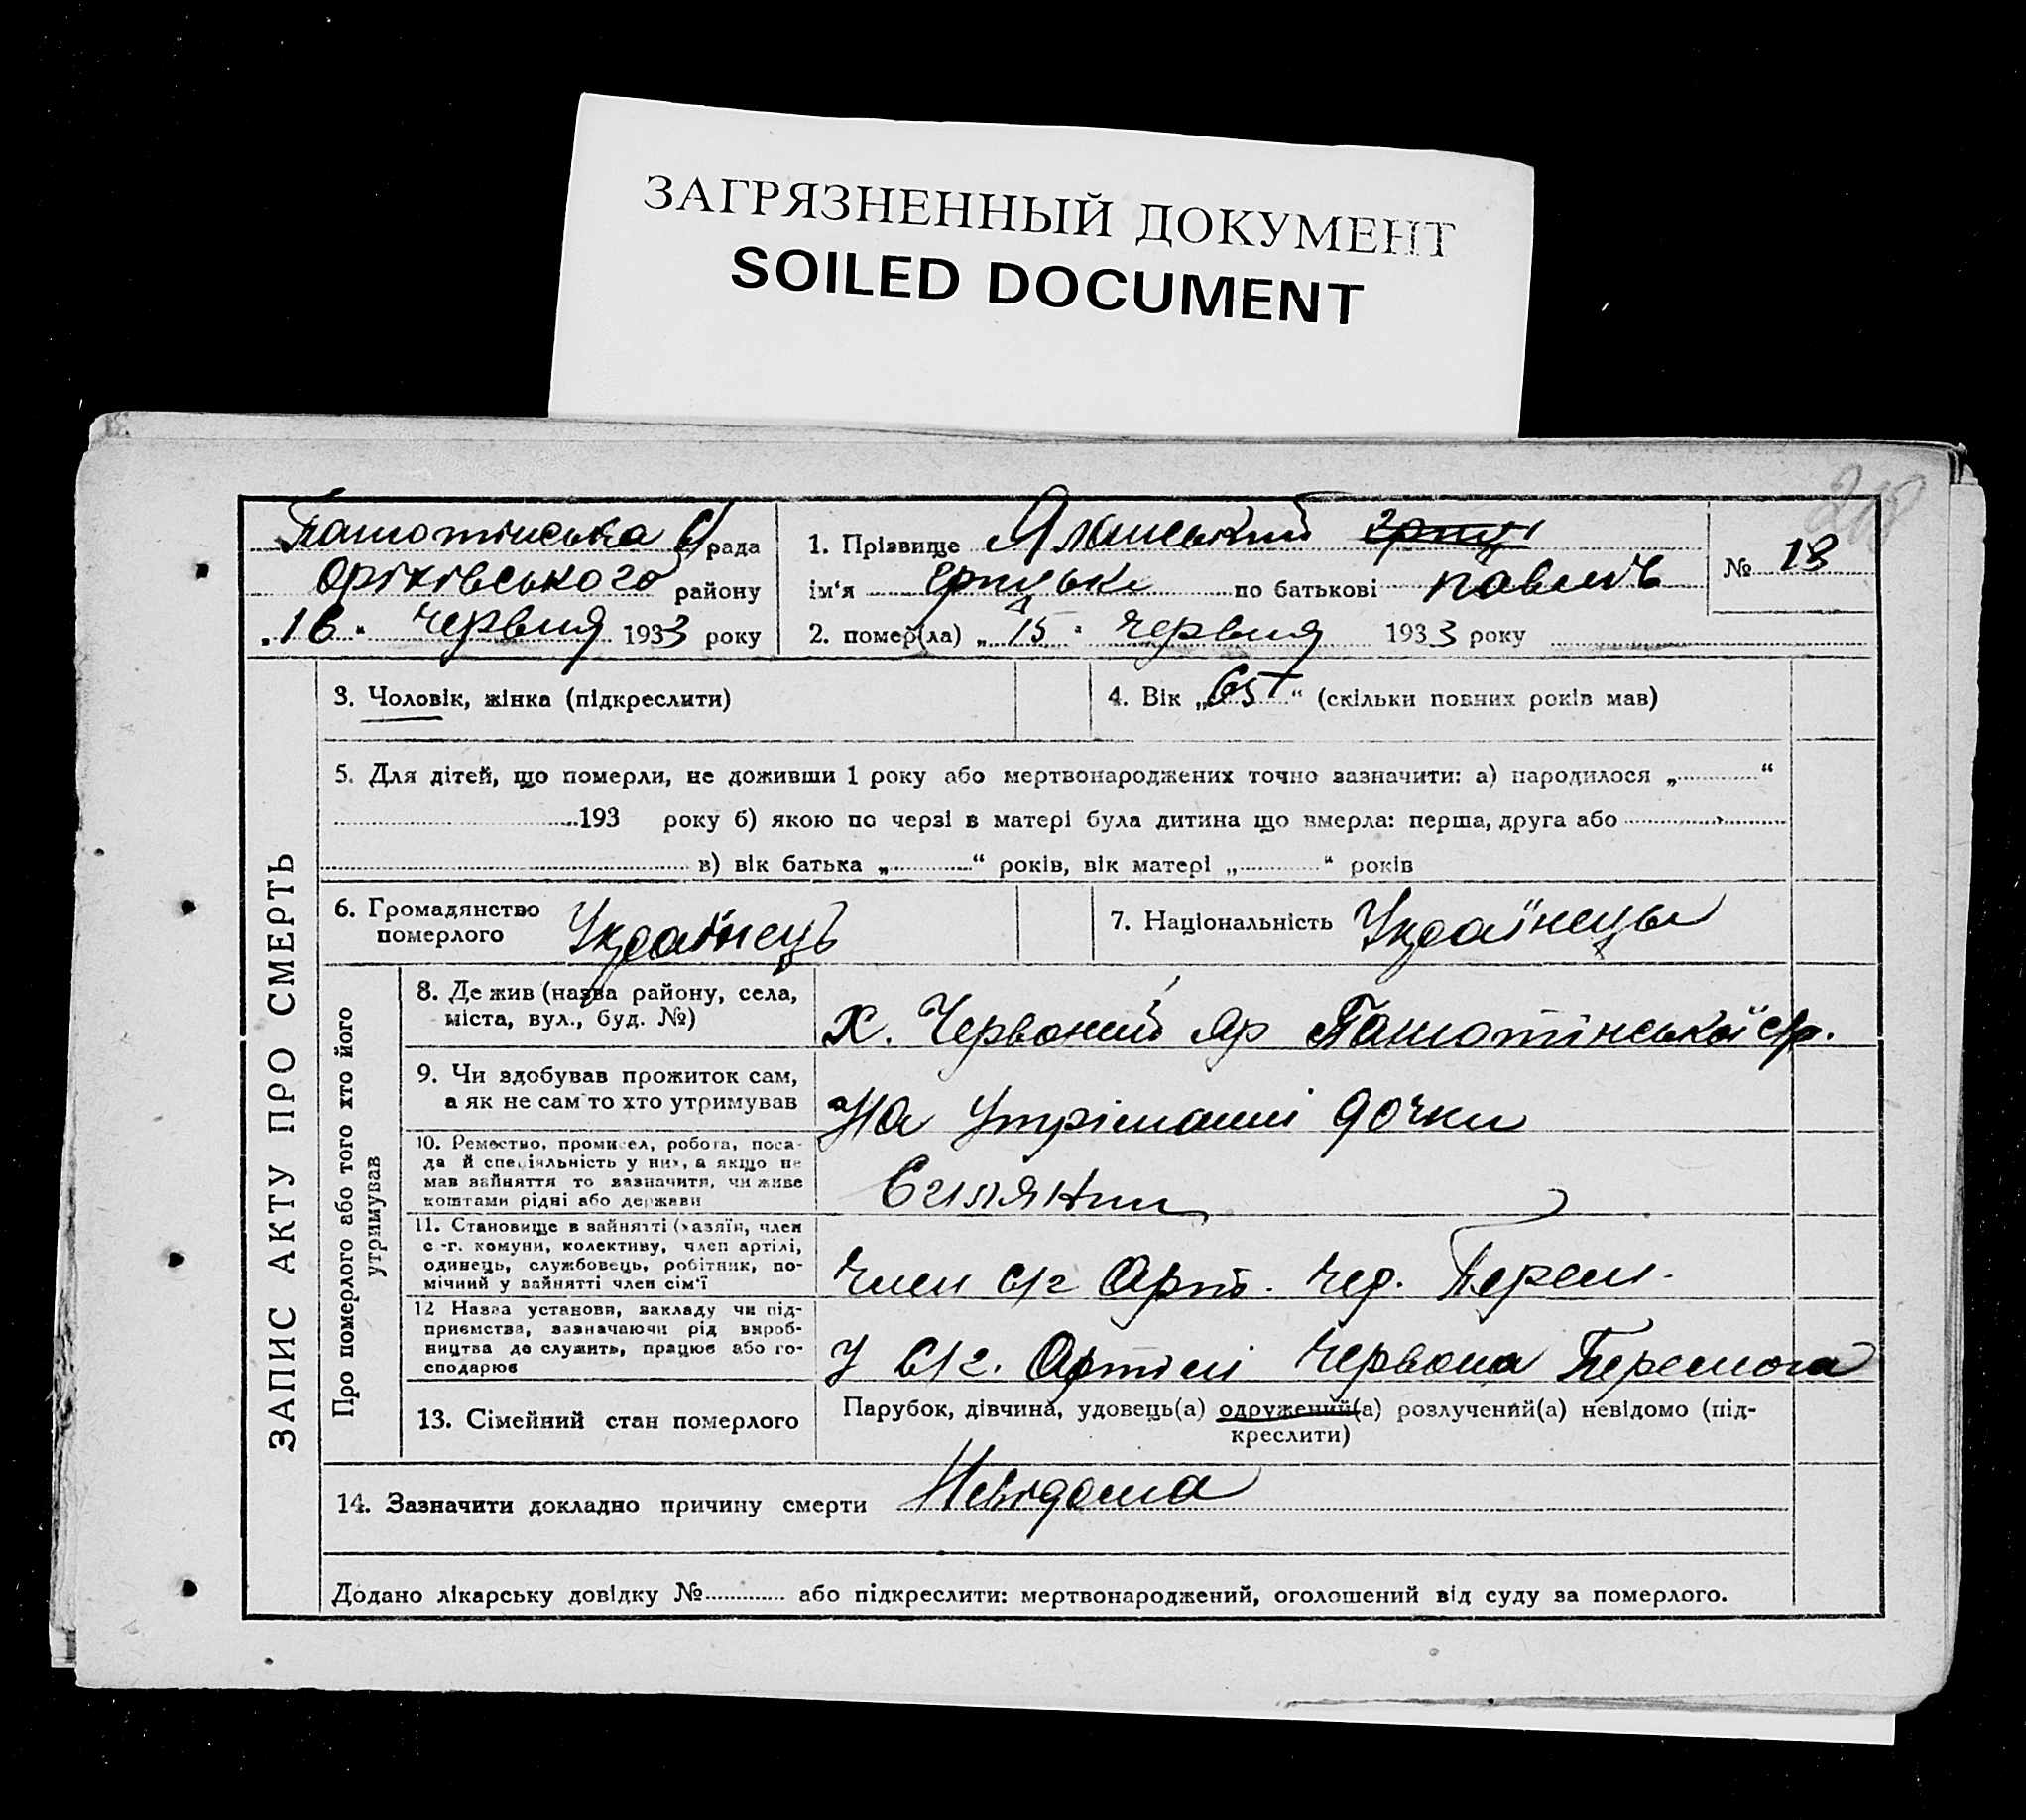 ЗАГРЯЗНЕННЫЙ ДОКУМЕНТ
SOILED DOCUMENT
с/рада
Оріхівського району
„16“ червня 1933 року
1. Прізвище
ім‘я по батькові
2. помер(ла) „15“ червня 1933 року
№ 18
ЗАПИС АКТУ ПРО СМЕРТЬ
3. Чоловік, жінка (підкреслити)
4. Вік „65“ (скільки повних років мав)
5. Для дітей, що померли, не доживши 1 року або мертвонароджених точно зазначити: а) народилося „ “
193 року б) якою по черзі в матері була дитина що вмерла: перша, друга або
в) вік батька „ “ років, вік матері „ “ років
6. Громадянство померлого Українець
7. Національність Українець
Про померлого або того хто його утримував
8. Де жив (назва району, села, міста, вул., буд. №)
Х. Червоний Яр с/р.
9. Чи здобував прожиток сам, а як не сам то хто утримував
На утріманні дочки
10. Ремество, промисел, робота, посада й спеціяльність у них, а якщо не мав зайняття то зазначити, чи живе коштами рідні або держави
11. Становище в зайнятті (хазяїн, член с.-г. комуни, колективу, член артілі, одинець, службовець, робітник, помічний у зайнятті член сім‘ї
Член с/г Арт. Чер. Перем.
12 Назва установи, закладу чи підприємства, зазначаючи рід виробництва де служить, працює або господарює
У с/г. Артілі Червона Перемога
13. Сімейний стан померлого
Парубок, дівчина, удовець(а) одружений(а) розлучений(а) невідомо (підкреслити)
14. Зазначити докладно причину смерти Невідома
Додано лікарську довідку № або підкреслити: мертвонароджений, оголошений від суду за померлого.